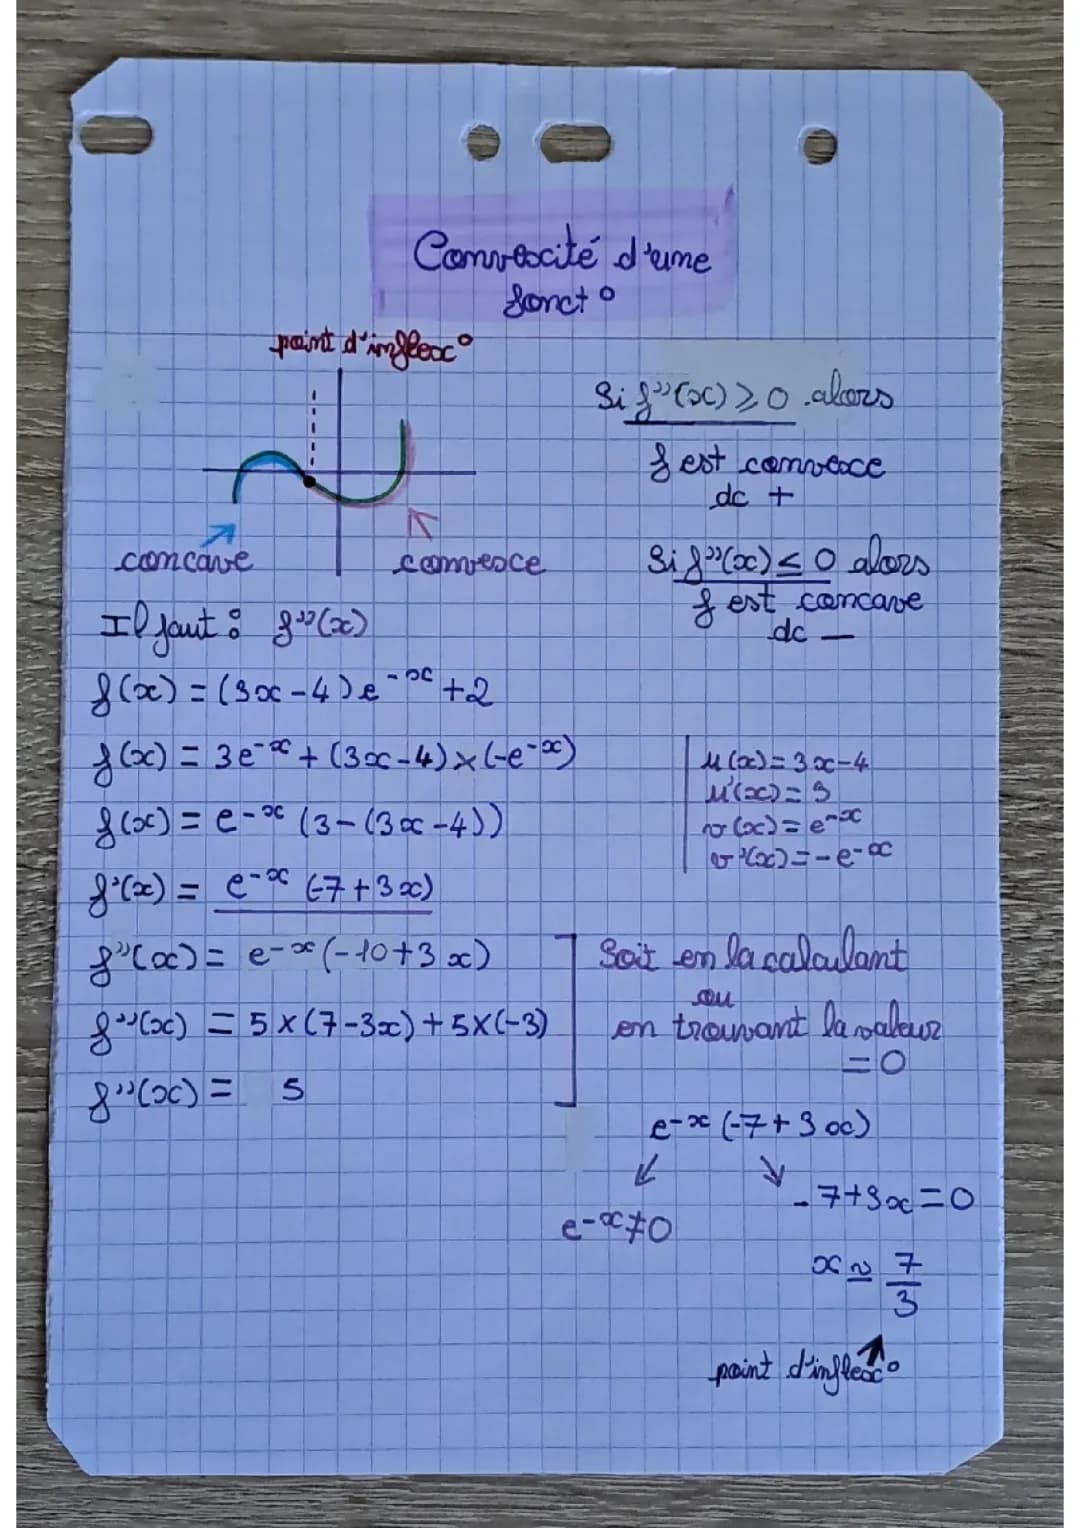 Convexité d'une
fonct°
point d'inflex°
concave
convexe
Si f''(x) ⩾ 0 alors
f est convexe
dc +
Si f''(x) ≤ 0 alors
f est concave
dc —
Il faut : f''(x)
f(x) = (3x-4)e^-x +2
f(x) = 3e^-x + (3x-4)×(-e^-x)
f(x) = e^-x (3-(3x-4))
f'(x) = e^-x (-7+3x)
u(x) = 3x-4
u'(x) = 3
v(x) = e^-x
v'(x) = -e^-x
f''(x) = e^-x (-10+3x)
f''(x) = 5×(7-3x)+5×(-3)
f''(x) = 5
Soit en la calculant
ou
en trouvant la valeur
= 0
e^-x (-7+3x)
↙ ↘
e^-x ≠ 0
-7+3x = 0
x ≃ 7/3
point d'inflex°